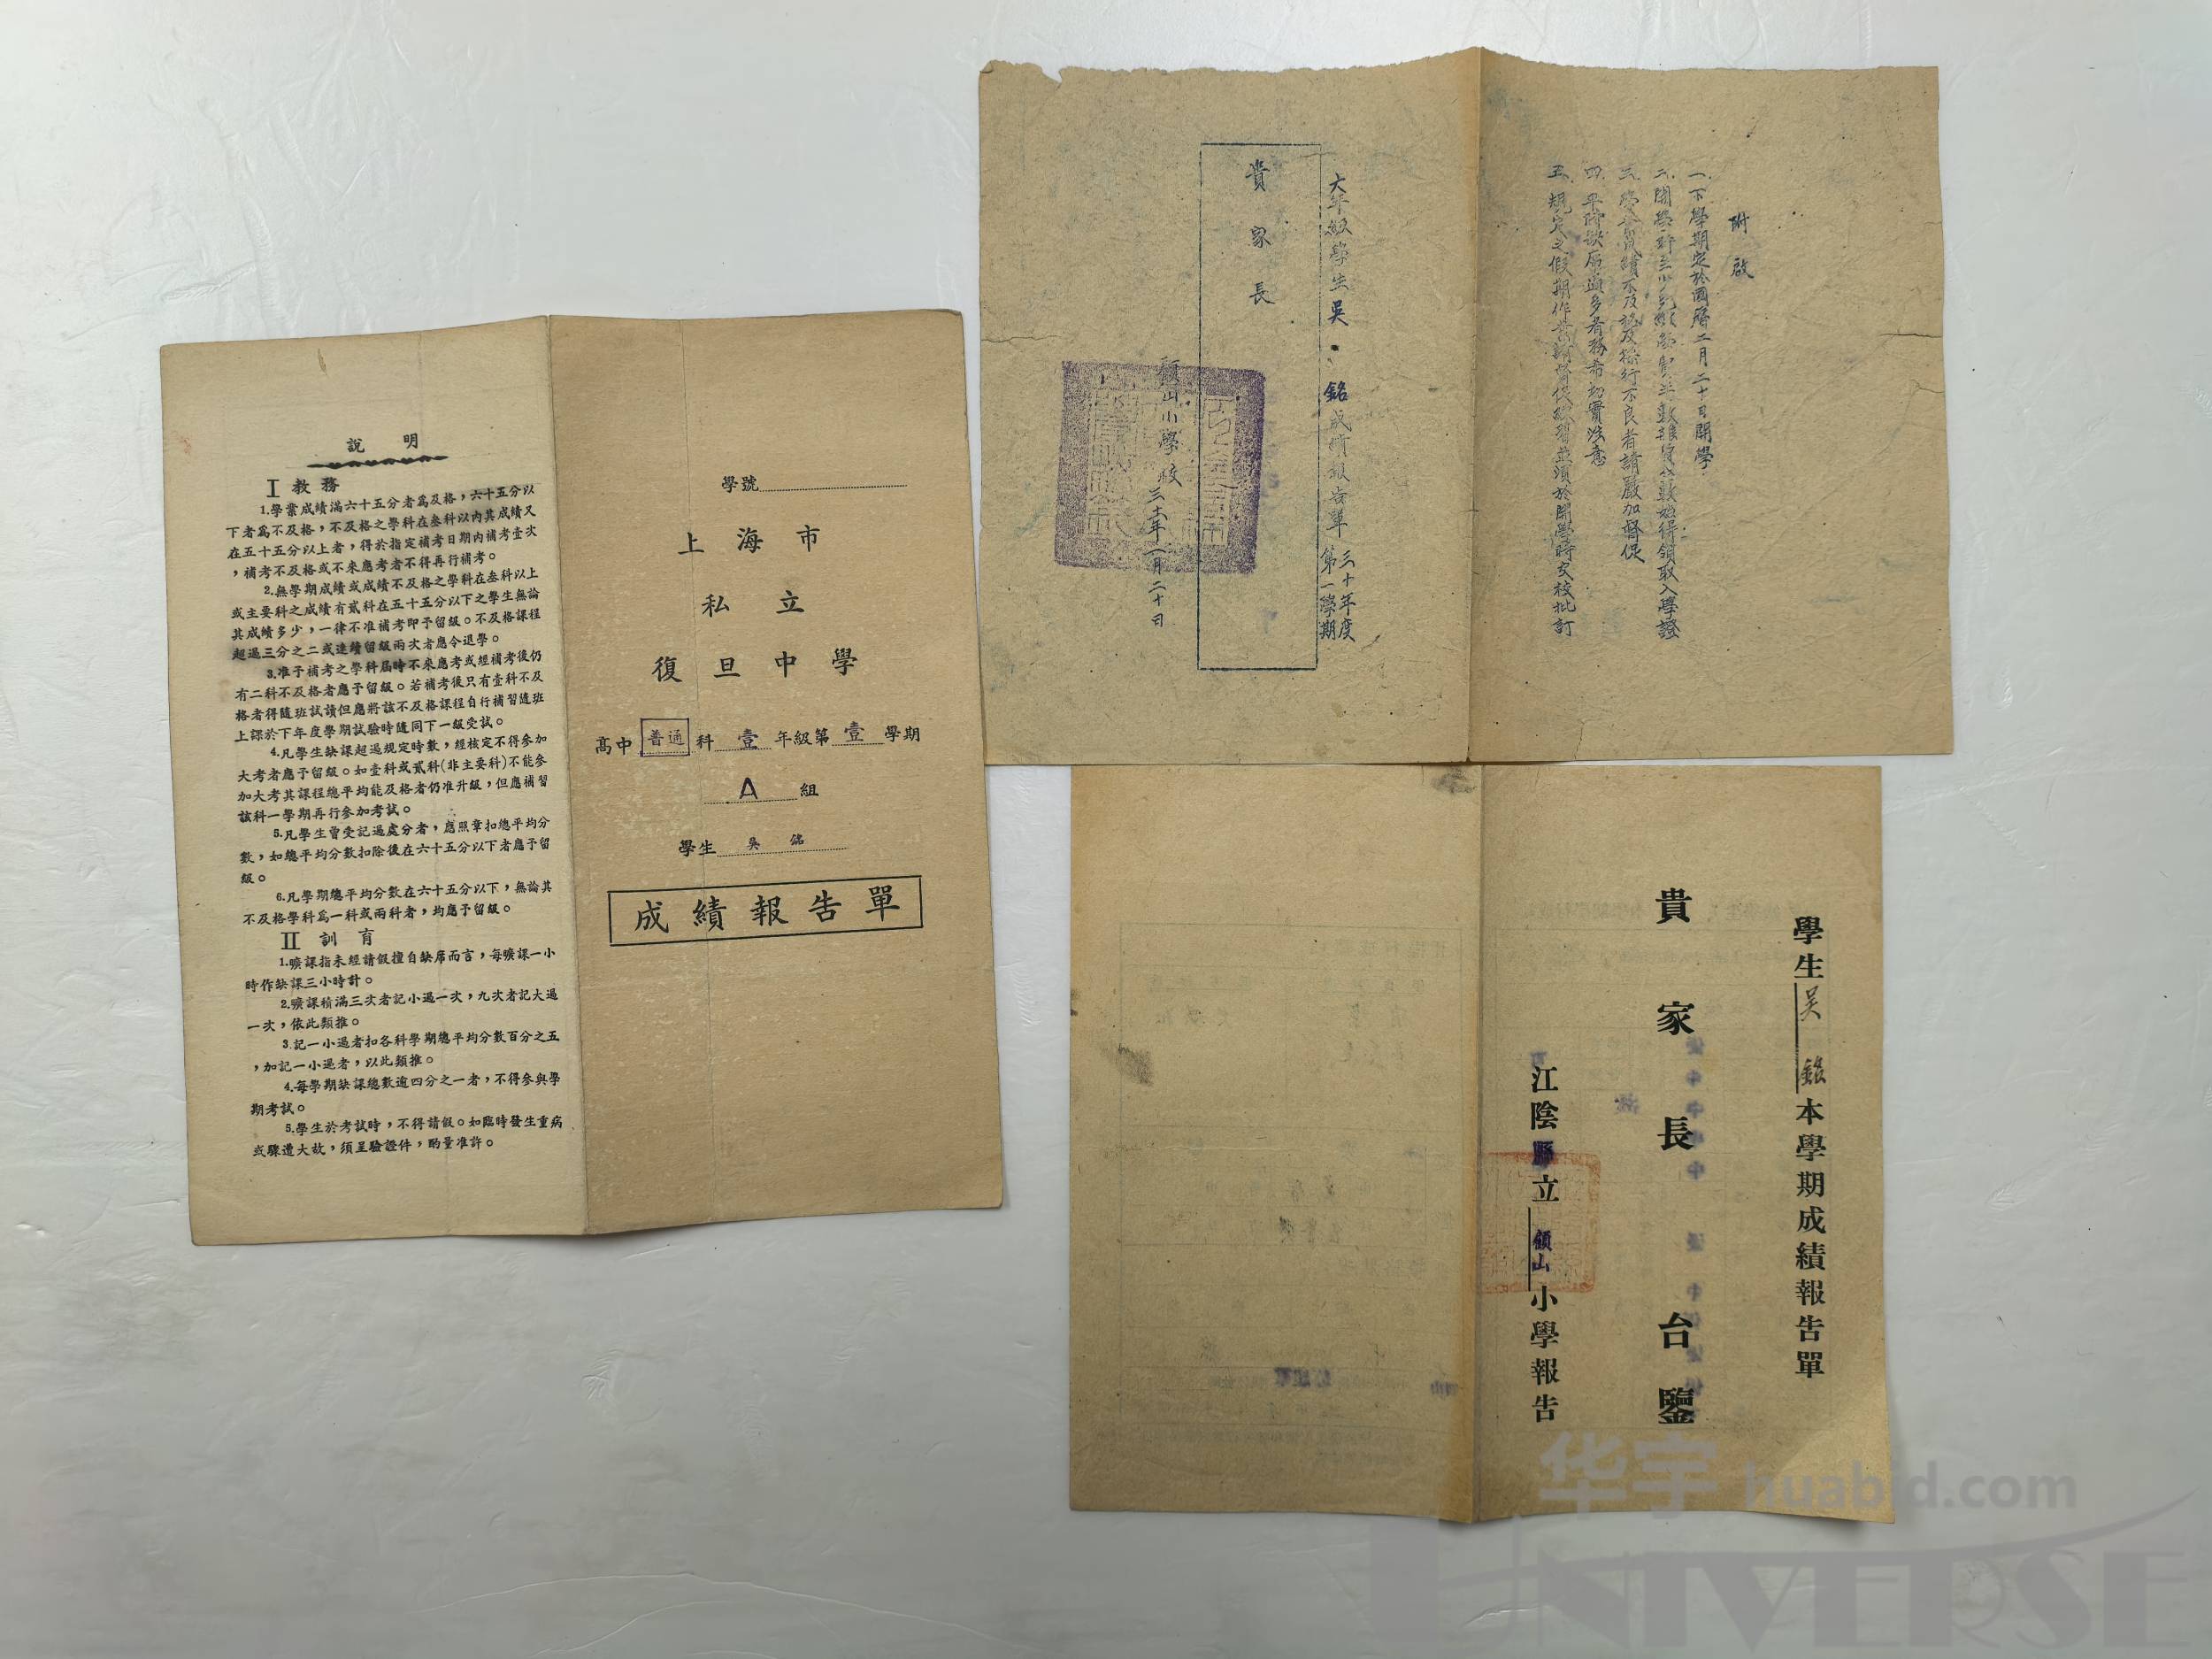 說明
I 教務
1.學業成績滿六十五分者爲及格，六十五分以
下者爲不及格，不及格之學科在叁科以內其成績又
在五十五分以上者，得於指定補考日期內補考壹次
，補考不及格或不來應考者不得再行補考。
2.無學期成績或成績不及格之學科在叁科以上
或主要科之成績有貳科在五十五分以下之學生無論
其成績多少，一律不准補考即予留級。不及格課程
超過三分之二或連續留級兩次者應令退學。
3.准予補考之學科屆時不來應考或經補考後仍
有二科不及格者應予留級。若補考後只有壹科不及
格者得隨班試讀但應將該不及格課程自行補習隨班
上課於下年度學期試驗時隨同下一級受試。
4.凡學生缺課超過規定時數，經核定不得參加
大考者應予留級。如壹科或貳科(非主要科)不能參
加大考其課程總平均能及格者仍准升級，但應補習
該科一學期再行參加考試。
5.凡學生曾受記過處分者，應照章扣總平均分
數，如總平均分數扣除後在六十五分以下者應予留
級。
6.凡學期總平均分數在六十五分以下，無論其
不及格學科爲一科或兩科者，均應予留級。
II 訓育
1.曠課指未經請假擅自缺席而言，每曠課一小
時作缺課三小時計。
2.曠課積滿三次者記小過一次，九次者記大過
一次，依此類推。
3.記一小過者扣各科學期總平均分數百分之五
，加記一小過者，以此類推。
4.每學期缺課總數逾四分之一者，不得參與學
期考試。
5.學生於考試時，不得請假。如臨時發生重病
或驟遭大故，須呈驗證件，酌量准許。
學號
上海市
私立
復旦中學
高中 普通 科 壹 年級第 壹 學期
A 組
學生 吳 銘
成績報告單
附啟
一.下學期定於國曆二月二十日開學
四.平時缺席過多者務希切實注意
五.規定之假期作業請督促練習並須於開學時交校批訂
年級學生吳銘成績報告單 三十年度第一學期
貴家長
顧山小學校
學生吳銘本學期成績報告單
貴家長台鑒
江陰縣立顧山小學報告
华宇 huabid.com
UNIVERSE